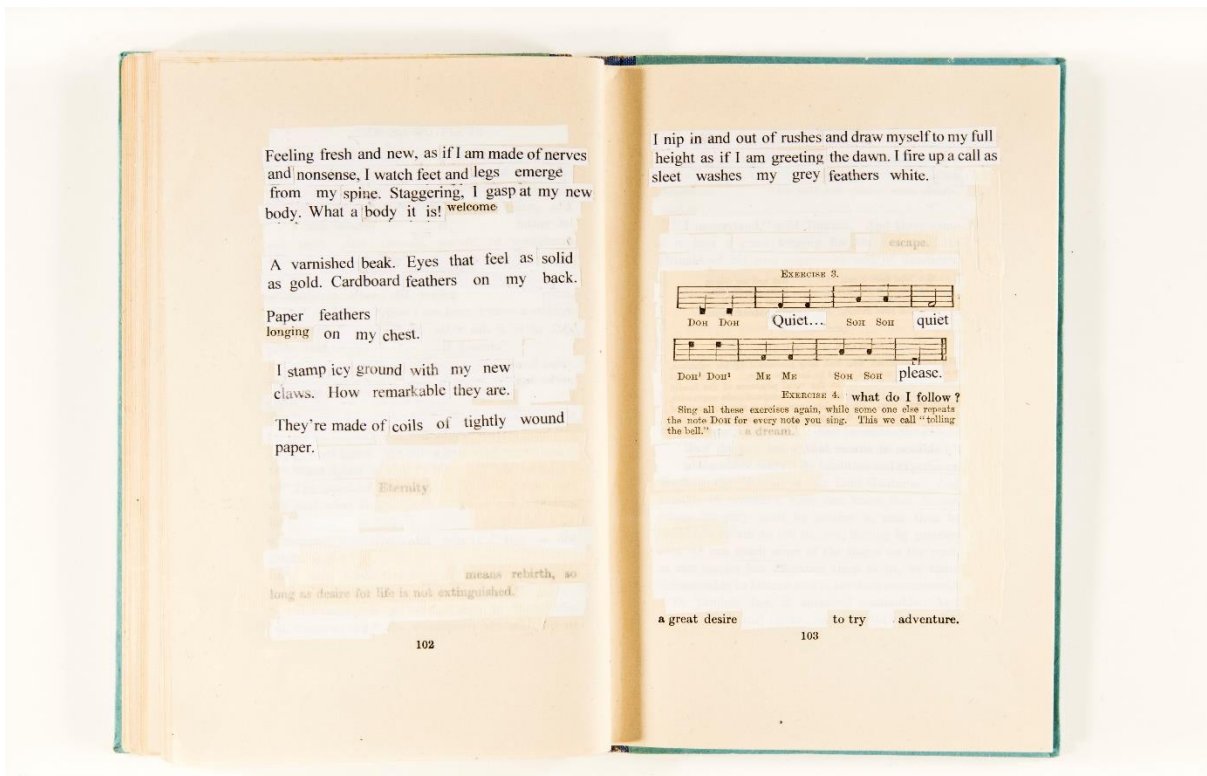 Feeling fresh and new, as if I am made of nerves
and nonsense, I watch feet and legs emerge
from my spine. Staggering, I gasp at my new
body. What a body it is! welcome
A varnished beak. Eyes that feel as solid
as gold. Cardboard feathers on my back.
Paper feathers
longing on my chest.
I stamp icy ground with my new
claws. How remarkable they are.
They're made of coils of tightly wound
paper.
Eternity
means rebirth, so
long as desire for life is not extinguished.
102
I nip in and out of rushes and draw myself to my full
height as if I am greeting the dawn. I fire up a call as
sleet washes my grey feathers white.
escape.
EXERCISE 3.
DOH DOH Quiet... SOH SOH quiet
DOH¹ DOH¹ ME ME SOH SOH please.
EXERCISE 4. what do I follow ?
Sing all these exercises again, while some one else repeats
the note DOH for every note you sing. This we call "tolling
the bell." a dream.
a great desire to try adventure.
103